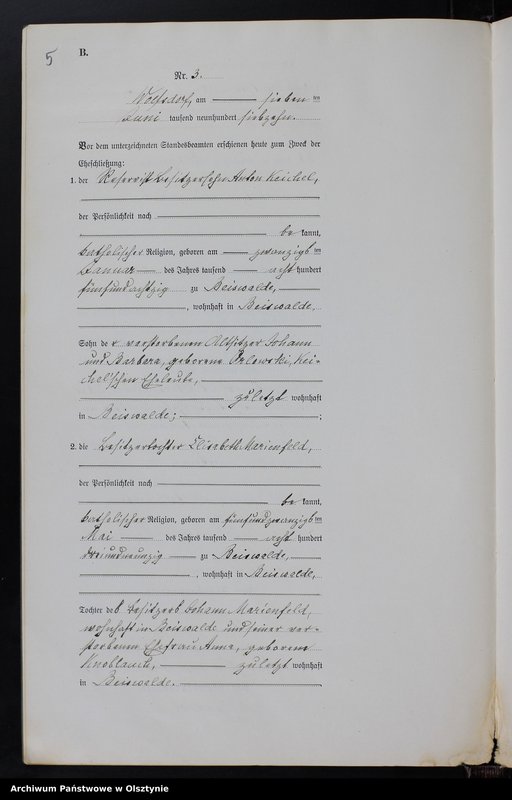 5
B.
Nr. 3.
Wolfsdorf, am sieben ten
Juni tausend neunhundert siebzehn.
Vor dem unterzeichneten Standesbeamten erschienen heute zum Zweck der
Eheschließung:
1. der Reservist Besitzersohn Anton Keichel,
der Persönlichkeit nach
be kannt,
katholischer Religion, geboren am zwanzigs ten
Januar des Jahres tausend acht hundert
fünfundachtzig zu Beiswalde,
, wohnhaft in Beiswalde,
Sohn de r verstorbenen Altsitzer Johann
und Barbara, geborene Orlowski, Kei-
chel'schen Eheleute,
zuletzt wohnhaft
in Beiswalde; ;
2. die Besitzertochter Elisabeth Marienfeld,
der Persönlichkeit nach
be kannt,
katholischer Religion, geboren am fünfundzwanzigs ten
Mai des Jahres tausend acht hundert
dreiundneunzig zu Beiswalde,
, wohnhaft in Beiswalde,
Tochter des Besitzers Johann Marienfeld,
wohnhaft in Beiswalde und seiner ver-
storbenen Ehefrau Anna, geborene
Knoblauch, zuletzt wohnhaft
in Beiswalde.
Archiwum Państwowe w Olsztynie